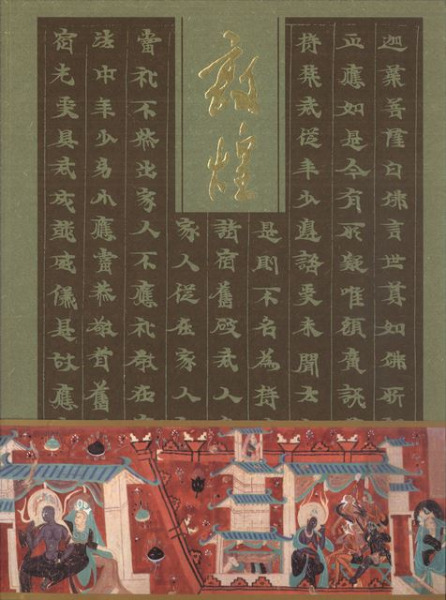 敦煌
迦葉菩薩白佛言世尊如佛所
正應如是今有所疑唯願廣說
持禁戒從年少邊諮受未聞云
是則不名為持
諸宿舊破戒人
家人從在家人
當礼不然出家人不應礼敬在
法中年少幼小應當恭敬耆舊
宿先受具戒成就威儀是故應